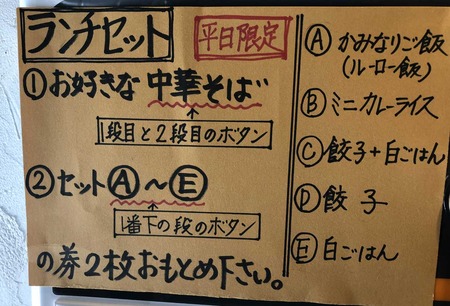 ランチセット 平日限定
①お好きな中華そば
↑
1段目と2段目のボタン
②セットⒶ～Ⓔ
↑
1番下の段のボタン
の券2枚おもとめ下さい。
Ⓐ かみなりご飯
(ルーロー飯)
Ⓑ ミニカレーライス
Ⓒ 餃子+白ごはん
Ⓓ 餃子
Ⓔ 白ごはん